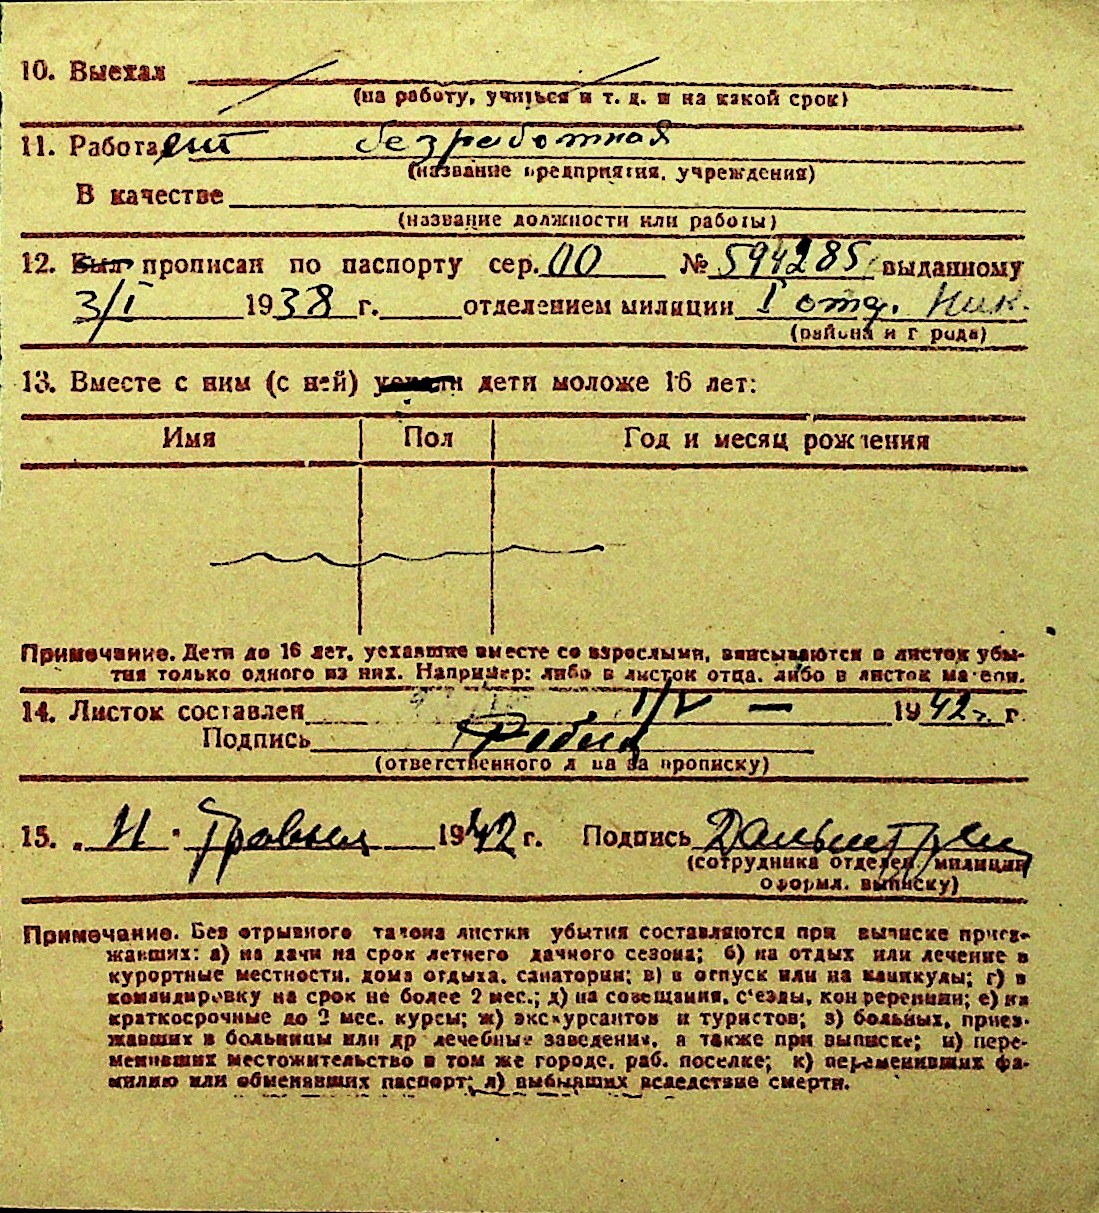 10. Выехал
(на работу, учиться и т. д. и на какой срок)
11. Работает безработная
(название предприятия, учреждения)
В качестве
(название должности или работы)
12. Был прописан по паспорту сер. ОО № 594285, выданному
3/I 1938 г. отделением милиции I отд. Ник.
(района и города)
13. Вместе с ним (с ней) уехали дети моложе 16 лет:
Имя Пол Год и месяц рождения
Примечание. Дети до 16 лет, уехавшие вместе со взрослыми, вписываются в листок убы-
тия только одного из них. Например: либо в листок отца, либо в листок матери.
14. Листок составлен 1/V — 1942 г. г.
Подпись
(ответственного лица за прописку)
15. „ 11 " Травня 1942 г. Подпись
(сотрудника отделен. милиции
оформл. выписку)
Примечание. Без отрывного талона листки убытия составляются при выписке приез-
жавших: а) на дачи на срок летнего дачного сезона; б) на отдых или лечение в
курортные местности, дома отдыха, санатории; в) в отпуск или на каникулы; г) в
командировку на срок не более 2 мес.; д) на совещания, с'езды, конференции; е) на
краткосрочные до 2 мес. курсы; ж) экскурсантов и туристов; з) больных, приез-
жавших в больницы или др лечебные заведения, а также при выписке; и) пере-
менивших местожительство в том же городе, раб. поселке; к) переменивших фа-
милию или обменявших паспорт; л) выбывших вследствие смерти.